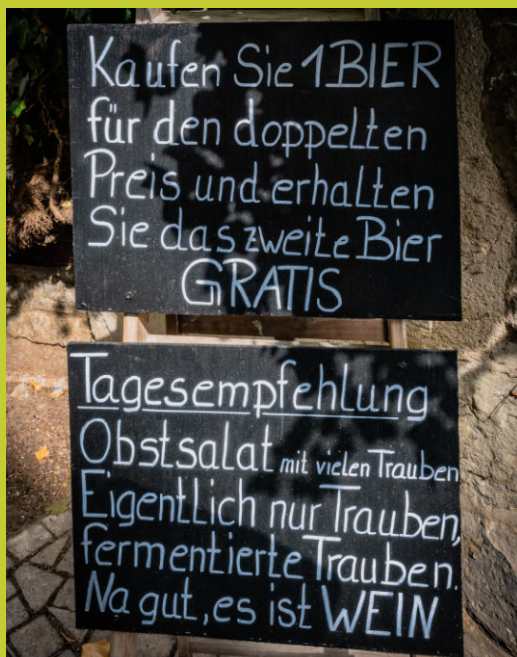 Kaufen Sie 1BIER
für den doppelten
Preis und erhalten
Sie das zweite Bier
GRATIS
Tagesempfehlung
Obstsalat mit vielen Trauben
Eigentlich nur Trauben,
fermentierte Trauben.
Na gut, es ist WEIN